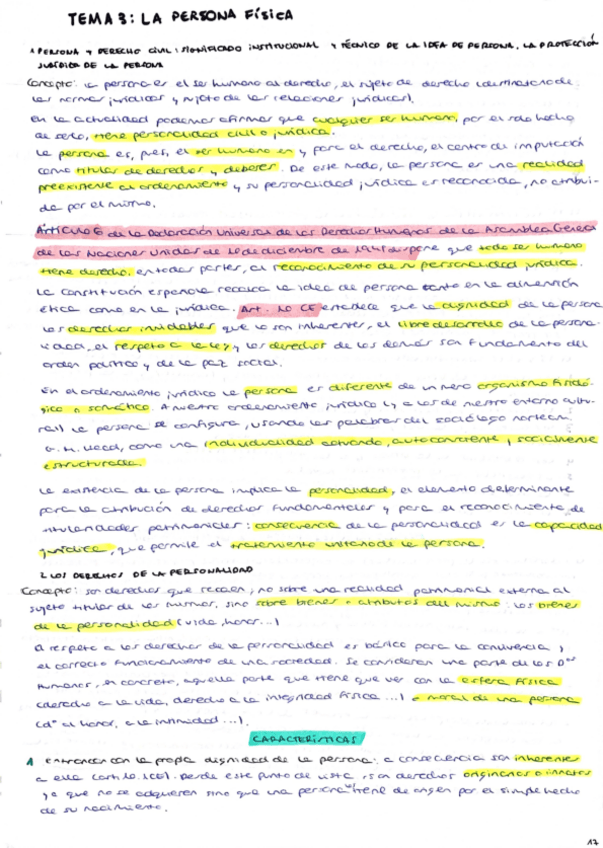 TEMA 3: LA PERSONA FÍSICA
1. PERSONA Y DERECHO CIVIL: SIGNIFICADO INSTITUCIONAL Y TÉCNICO DE LA IDEA DE PERSONA. LA PROTECCIÓN
JURÍDICA DE LA PERSONA
Concepto: la persona es el ser humano al derecho, el sujeto de derecho (destinatario de
las normas jurídicas y sujeto de las relaciones jurídicas).
En la actualidad podemos afirmar que cualquier ser humano, por el solo hecho
de serlo, tiene personalidad civil o jurídica.
La persona es, pues, el ser humano en y para el derecho, el centro de imputación
como titular de derechos y deberes. De este modo, la persona es una realidad
preexistente al ordenamiento y su personalidad jurídica es reconocida, no atribui-
da por el mismo.
Artículo 6 de la Declaración Universal de los Derechos Humanos de la Asamblea General
de las Naciones Unidas de 10 de diciembre de 1948 dispone que todo ser humano
tiene derecho, en todas partes, al reconocimiento de su personalidad jurídica.
La Constitución española recalca la idea de persona tanto en la dimensión
ética como en la jurídica. Art. 10 CE establece que la dignidad de la persona
los derechos inviolables que le son inherentes, el libre desarrollo de la persona-
lidad, el respeto a la ley y los derechos de los demás son fundamento del
orden político y de la paz social.
En el ordenamiento jurídico la persona es diferente de un mero organismo fisioló-
gico o somático. A nuestro ordenamiento jurídico (y a los de nuestro entorno cultu-
ral) la persona se configura, usando las palabras del sociólogo norteam.
G. H. Mead, como una individualidad actuando, autoconsciente y socialmente
estructurada.
La existencia de la persona implica la personalidad, el elemento determinante
para la atribución de derechos fundamentales y para el reconocimiento de
titularidades patrimoniales: consecuencia de la personalidad es la capacidad
jurídica, que permite el tratamiento unitario de la persona.
2. LOS DERECHOS DE LA PERSONALIDAD
Concepto: son derechos que recaen, no sobre una realidad patrimonial externa al
sujeto titular de los mismos, sino sobre bienes o atributos del mismo: los bienes
de la personalidad (vida, honor...)
El respeto a los derechos de la personalidad es básico para la convivencia y
el correcto funcionamiento de una sociedad. Se consideran una parte de los Dos
Humanos, en concreto, aquella parte que tiene que ver con la esfera física
(derecho a la vida, derecho a la integridad física...) o moral de una persona
(dº al honor, a la intimidad...).
CARACTERÍSTICAS
1 entroncan con la propia dignidad de la persona: a consecuencia son inherentes
a ella (art. 10.1CE). Desde este punto de vista, son derechos originarios o innatos
ya que no se adquieren sino que una persona tiene de origen por el simple hecho
de su nacimiento.
17